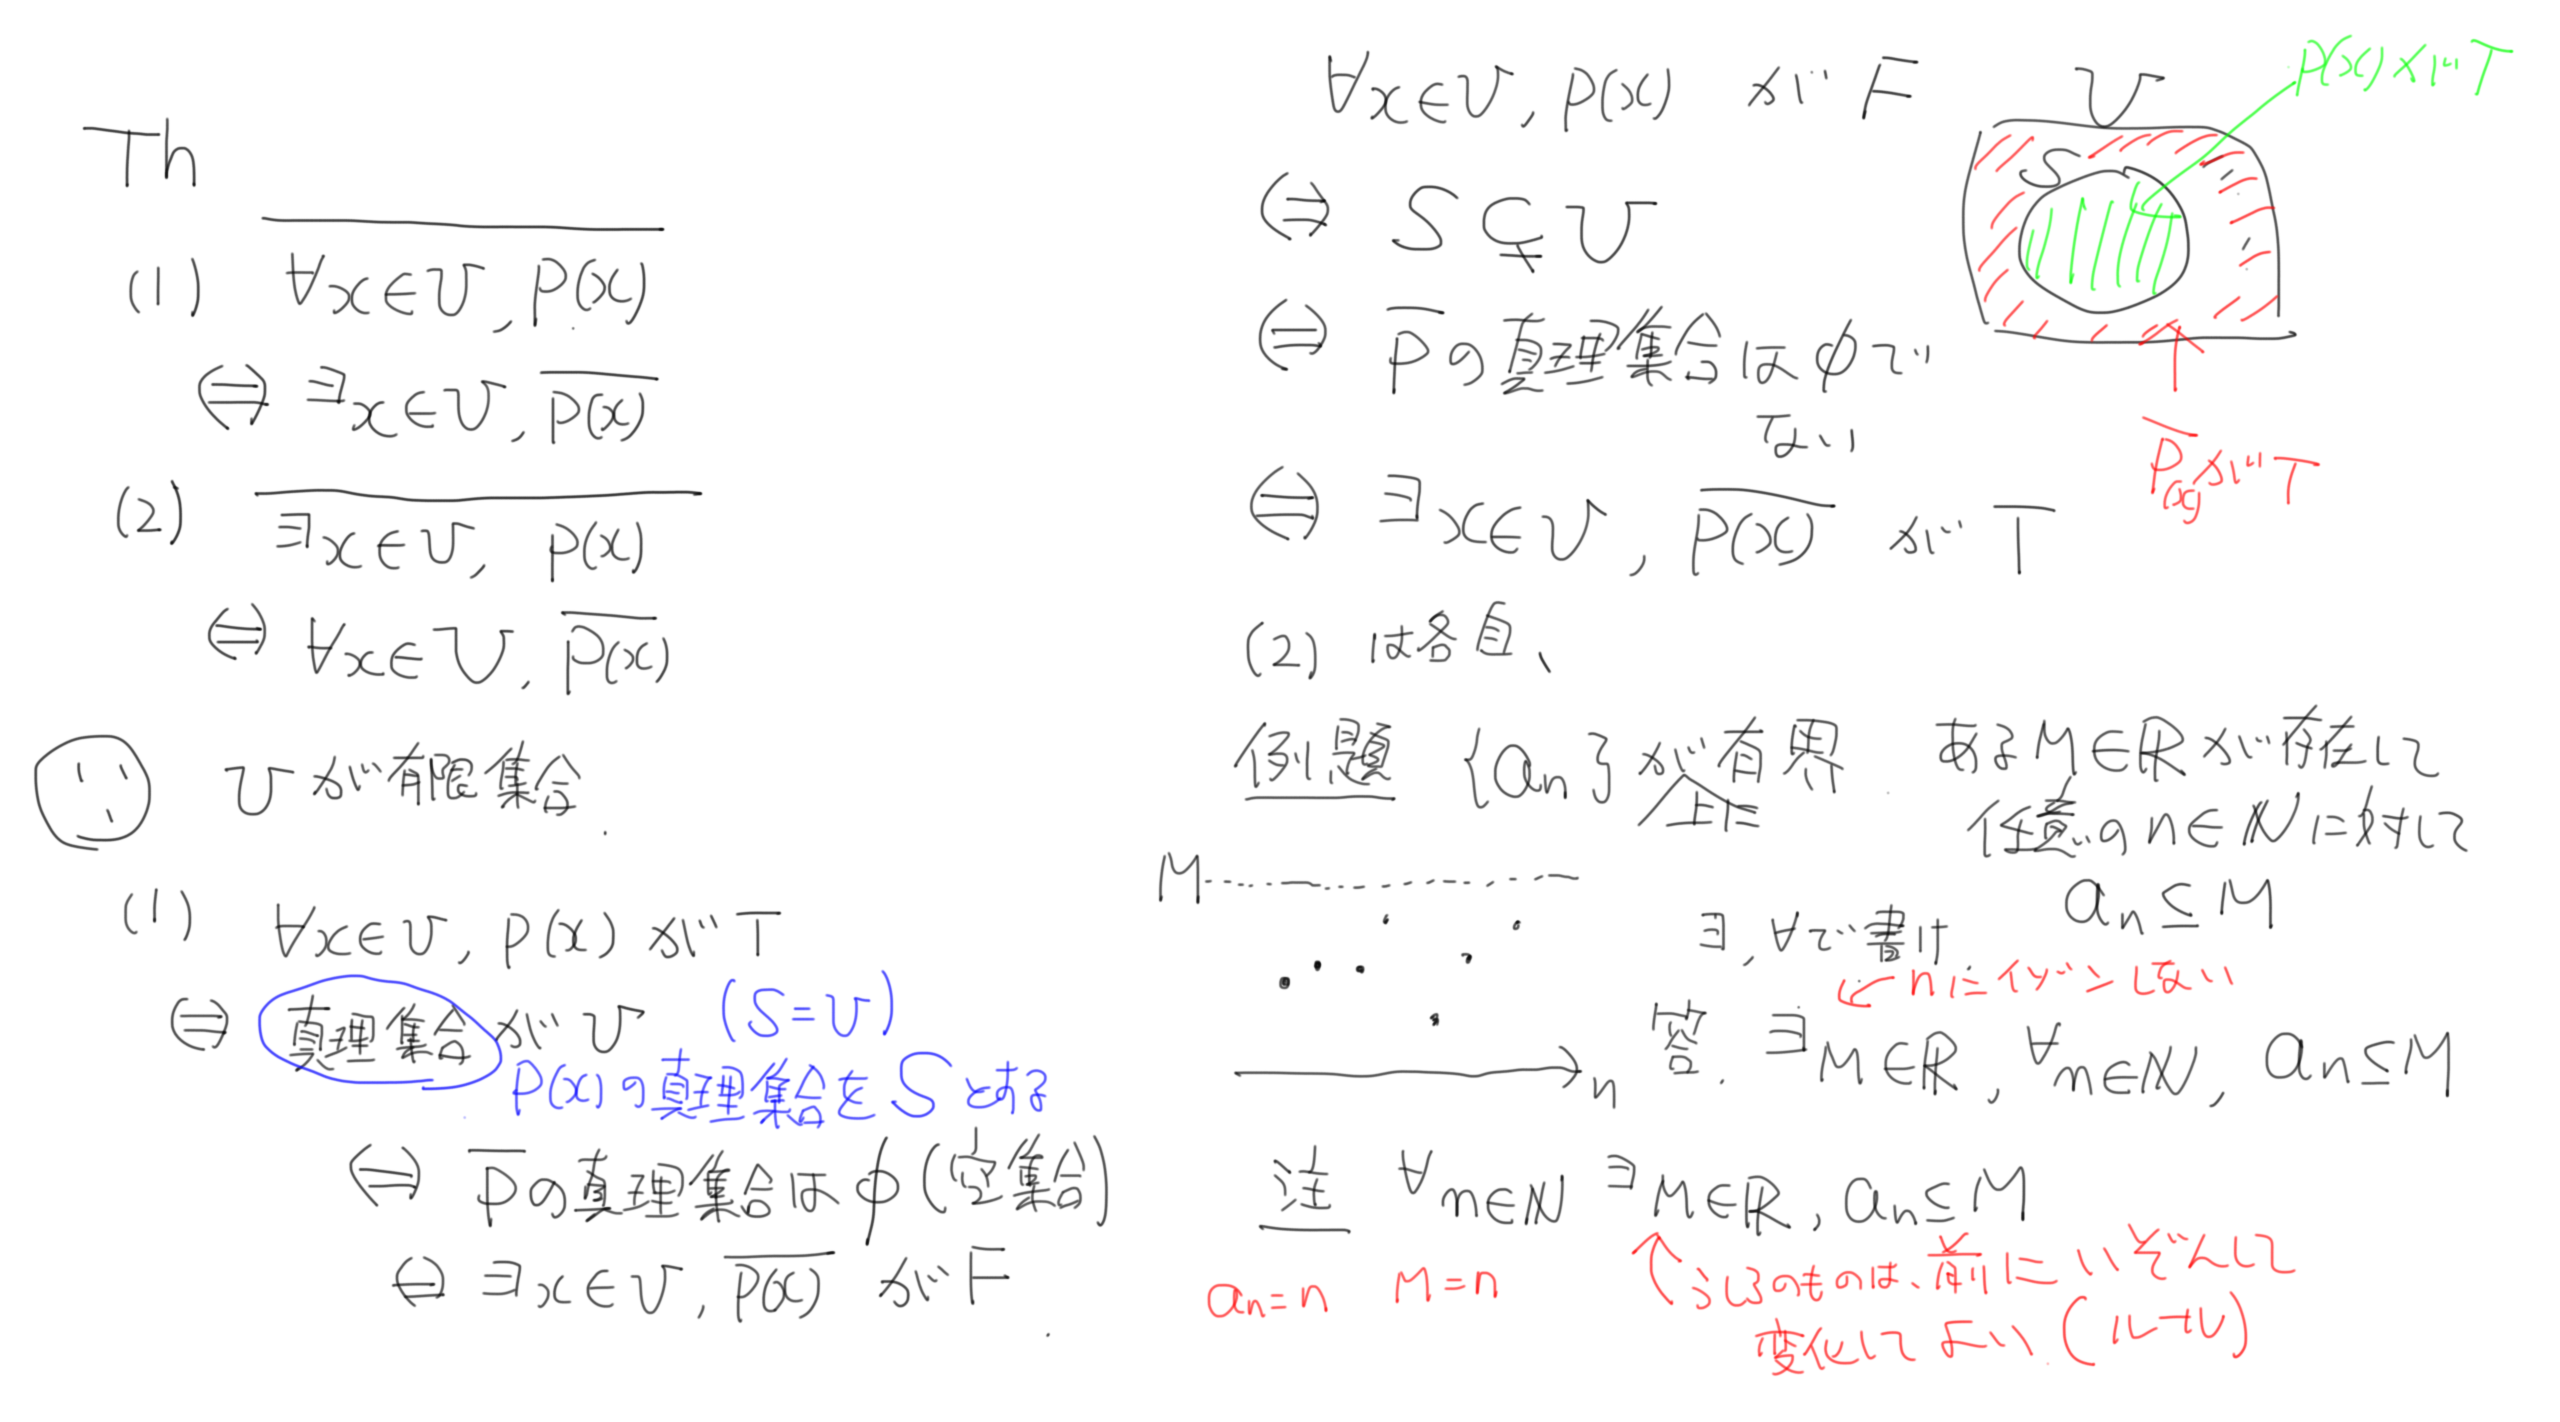 Th
(1) \overline{∀x∈U, P(x)}
⇔ ∃x∈U, \overline{P(x)}
(2) \overline{∃x∈U, P(x)}
⇔ ∀x∈U, \overline{P(x)}
Uが有限集合.
(1) ∀x∈U, P(x) がT
⇔ 真理集合がU (S=U)
P(x)の真理集合をSとする
⇔ \overline{P}の真理集合はφ(空集合)
⇔ ∃x∈U, \overline{P(x)} がF
∀x∈U, P(x) がF
⇔ S⊊U
⇔ \overline{P}の真理集合はφで
ない
⇔ ∃x∈U, \overline{P(x)} がT
U
S
P(x)がT
\overline{P}(x)がT
(2) は各自、
例題 {an}が上に有界
あるM∈ℝが存在して
任意のn∈ℕに対して
an≦M
∃,∀で書け.
M
n
nにイゾンしない
答. ∃M∈ℝ, ∀n∈ℕ, an≦M
注 ∀n∈ℕ ∃M∈ℝ, an≦M
an=n M=n
うしろのものは、前にいぞんして
変化してよい (ルール)